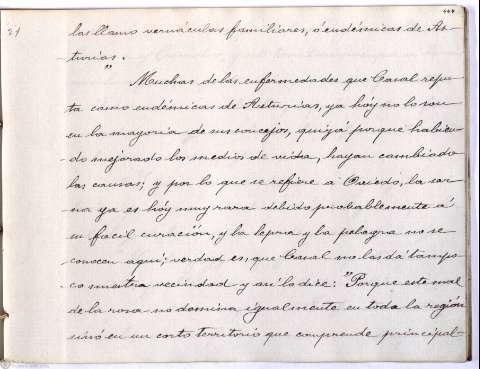 21
las llamo vernáculas familiares, ó endémicas de As-
turias."
Muchas de las enfermedades que Casal repu-
ta como endémicas de Asturias, ya hóy no lo son
en la mayoria de sus concejos, quizá porque habien-
do mejorado los medios de vida, hayan cambiado
las causas; y por lo que se refiere á Oviedo, la sar-
na ya es hóy muy rara debido probablemente á
su facil curación, y la lepra y la pelagra no se
conocen aquí; verdad es, que Casal no las dá tampo-
co nuestra vecindad y así lo dice: "Porque este mal
de la rosa no domina igualmente en toda la región
sinó en un corto territorio que comprende principal-